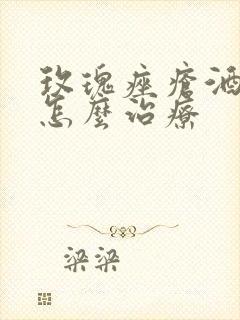 玫瑰痤瘡酒
怎麼治療
梁梁